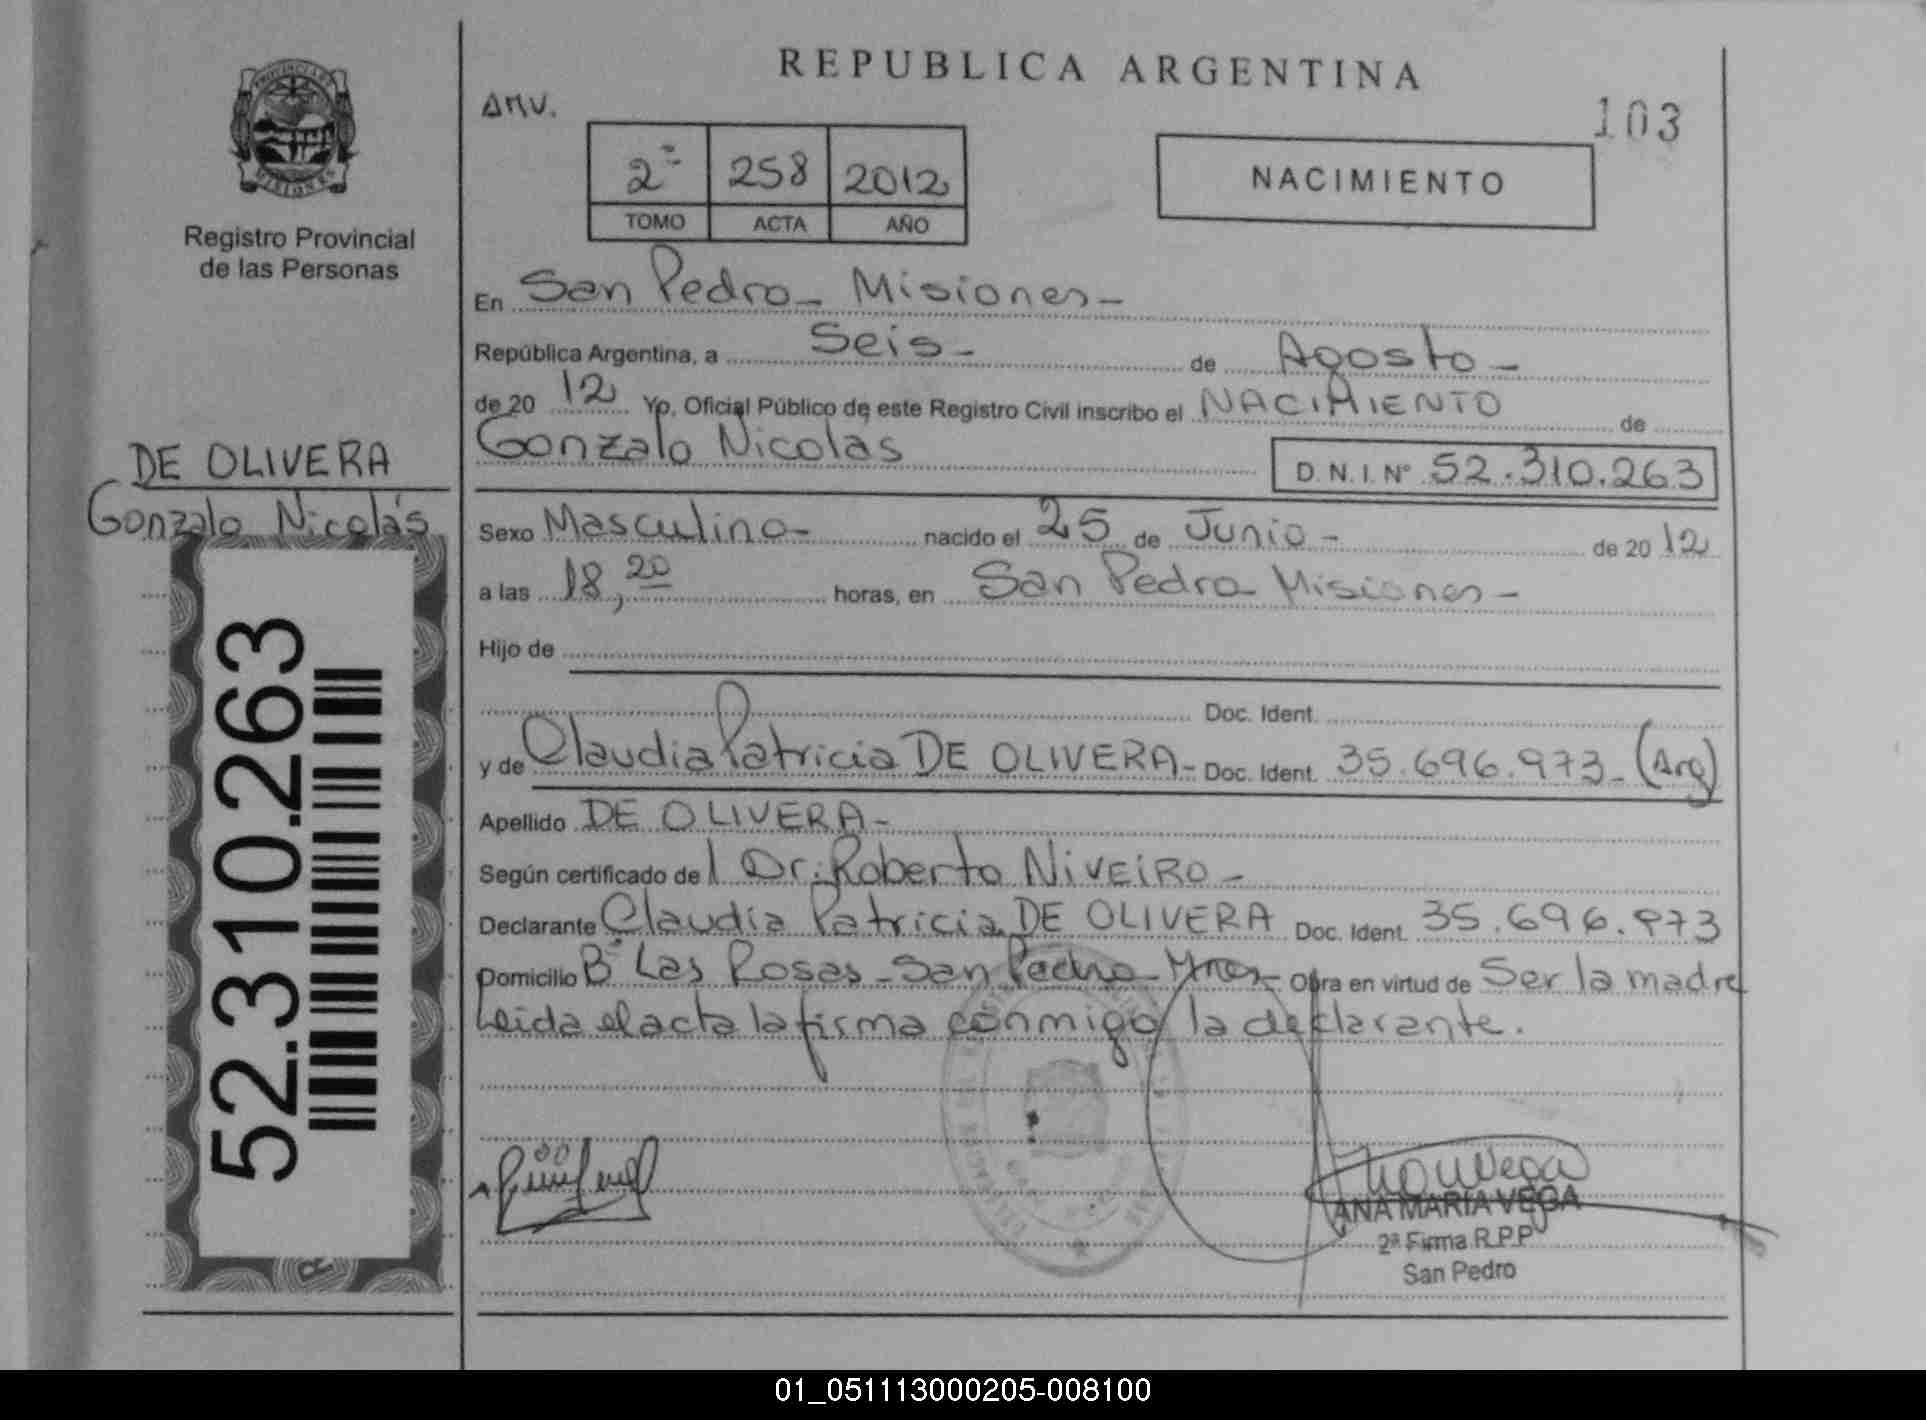 REPUBLICA ARGENTINA
PROVINCIA DE
MISIONES
Registro Provincial
de las Personas
ANV.
103
2º 258 2012
TOMO ACTA AÑO
NACIMIENTO
En San Pedro - Misiones -
República Argentina, a Seis - de Agosto -
de 20 12 Yo, Oficial Público de este Registro Civil inscribo el NACIMIENTO de
Gonzalo Nicolas D.N.I. Nº 52.310.263
DE OLIVERA
Gonzalo Nicolás
52.310.263
Sexo Masculino - nacido el 25 de Junio - de 20 12
a las 18,20 horas, en San Pedro - Misiones -
Hijo de
Doc. Ident.
y de Claudia Patricia DE OLIVERA - Doc. Ident. 35.696.973 - (Arg)
Apellido DE OLIVERA -
Según certificado del Dr. Roberto NIVEIRO -
Declarante Claudia Patricia DE OLIVERA Doc. Ident. 35.696.973
Domicilio Bº Las Rosas - San Pedro - Mnes - Obra en virtud de Ser la madre
Leida el acta la firma conmigo la declarante.
ANA MARIA VEGA
2ª Firma R.P.P
San Pedro
01_051113000205-008100